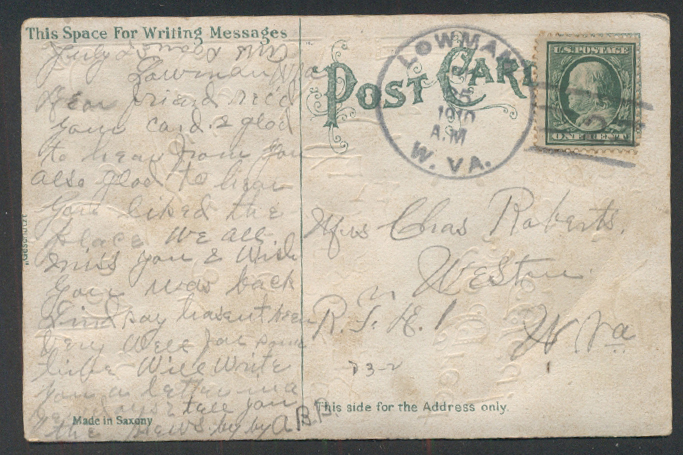 This Space For Writing Messages
July
Lowman W Va
Dear friend recd
your card & glad
to hear from you
also glad to hear
you liked the
place we all
miss you & wish
you was back
Lindsay hasent been
very well for some
time will write
you a letter
tell you
the news by by A.B.
Made in Saxony
POST CARD
LOWMAN
1910
A.M
W. VA.
U.S. POSTAGE
ONE CENT
Mrs Chas Roberts.
Weston
R.F.D. 1 W Va
23-2 1
This side for the Address only.